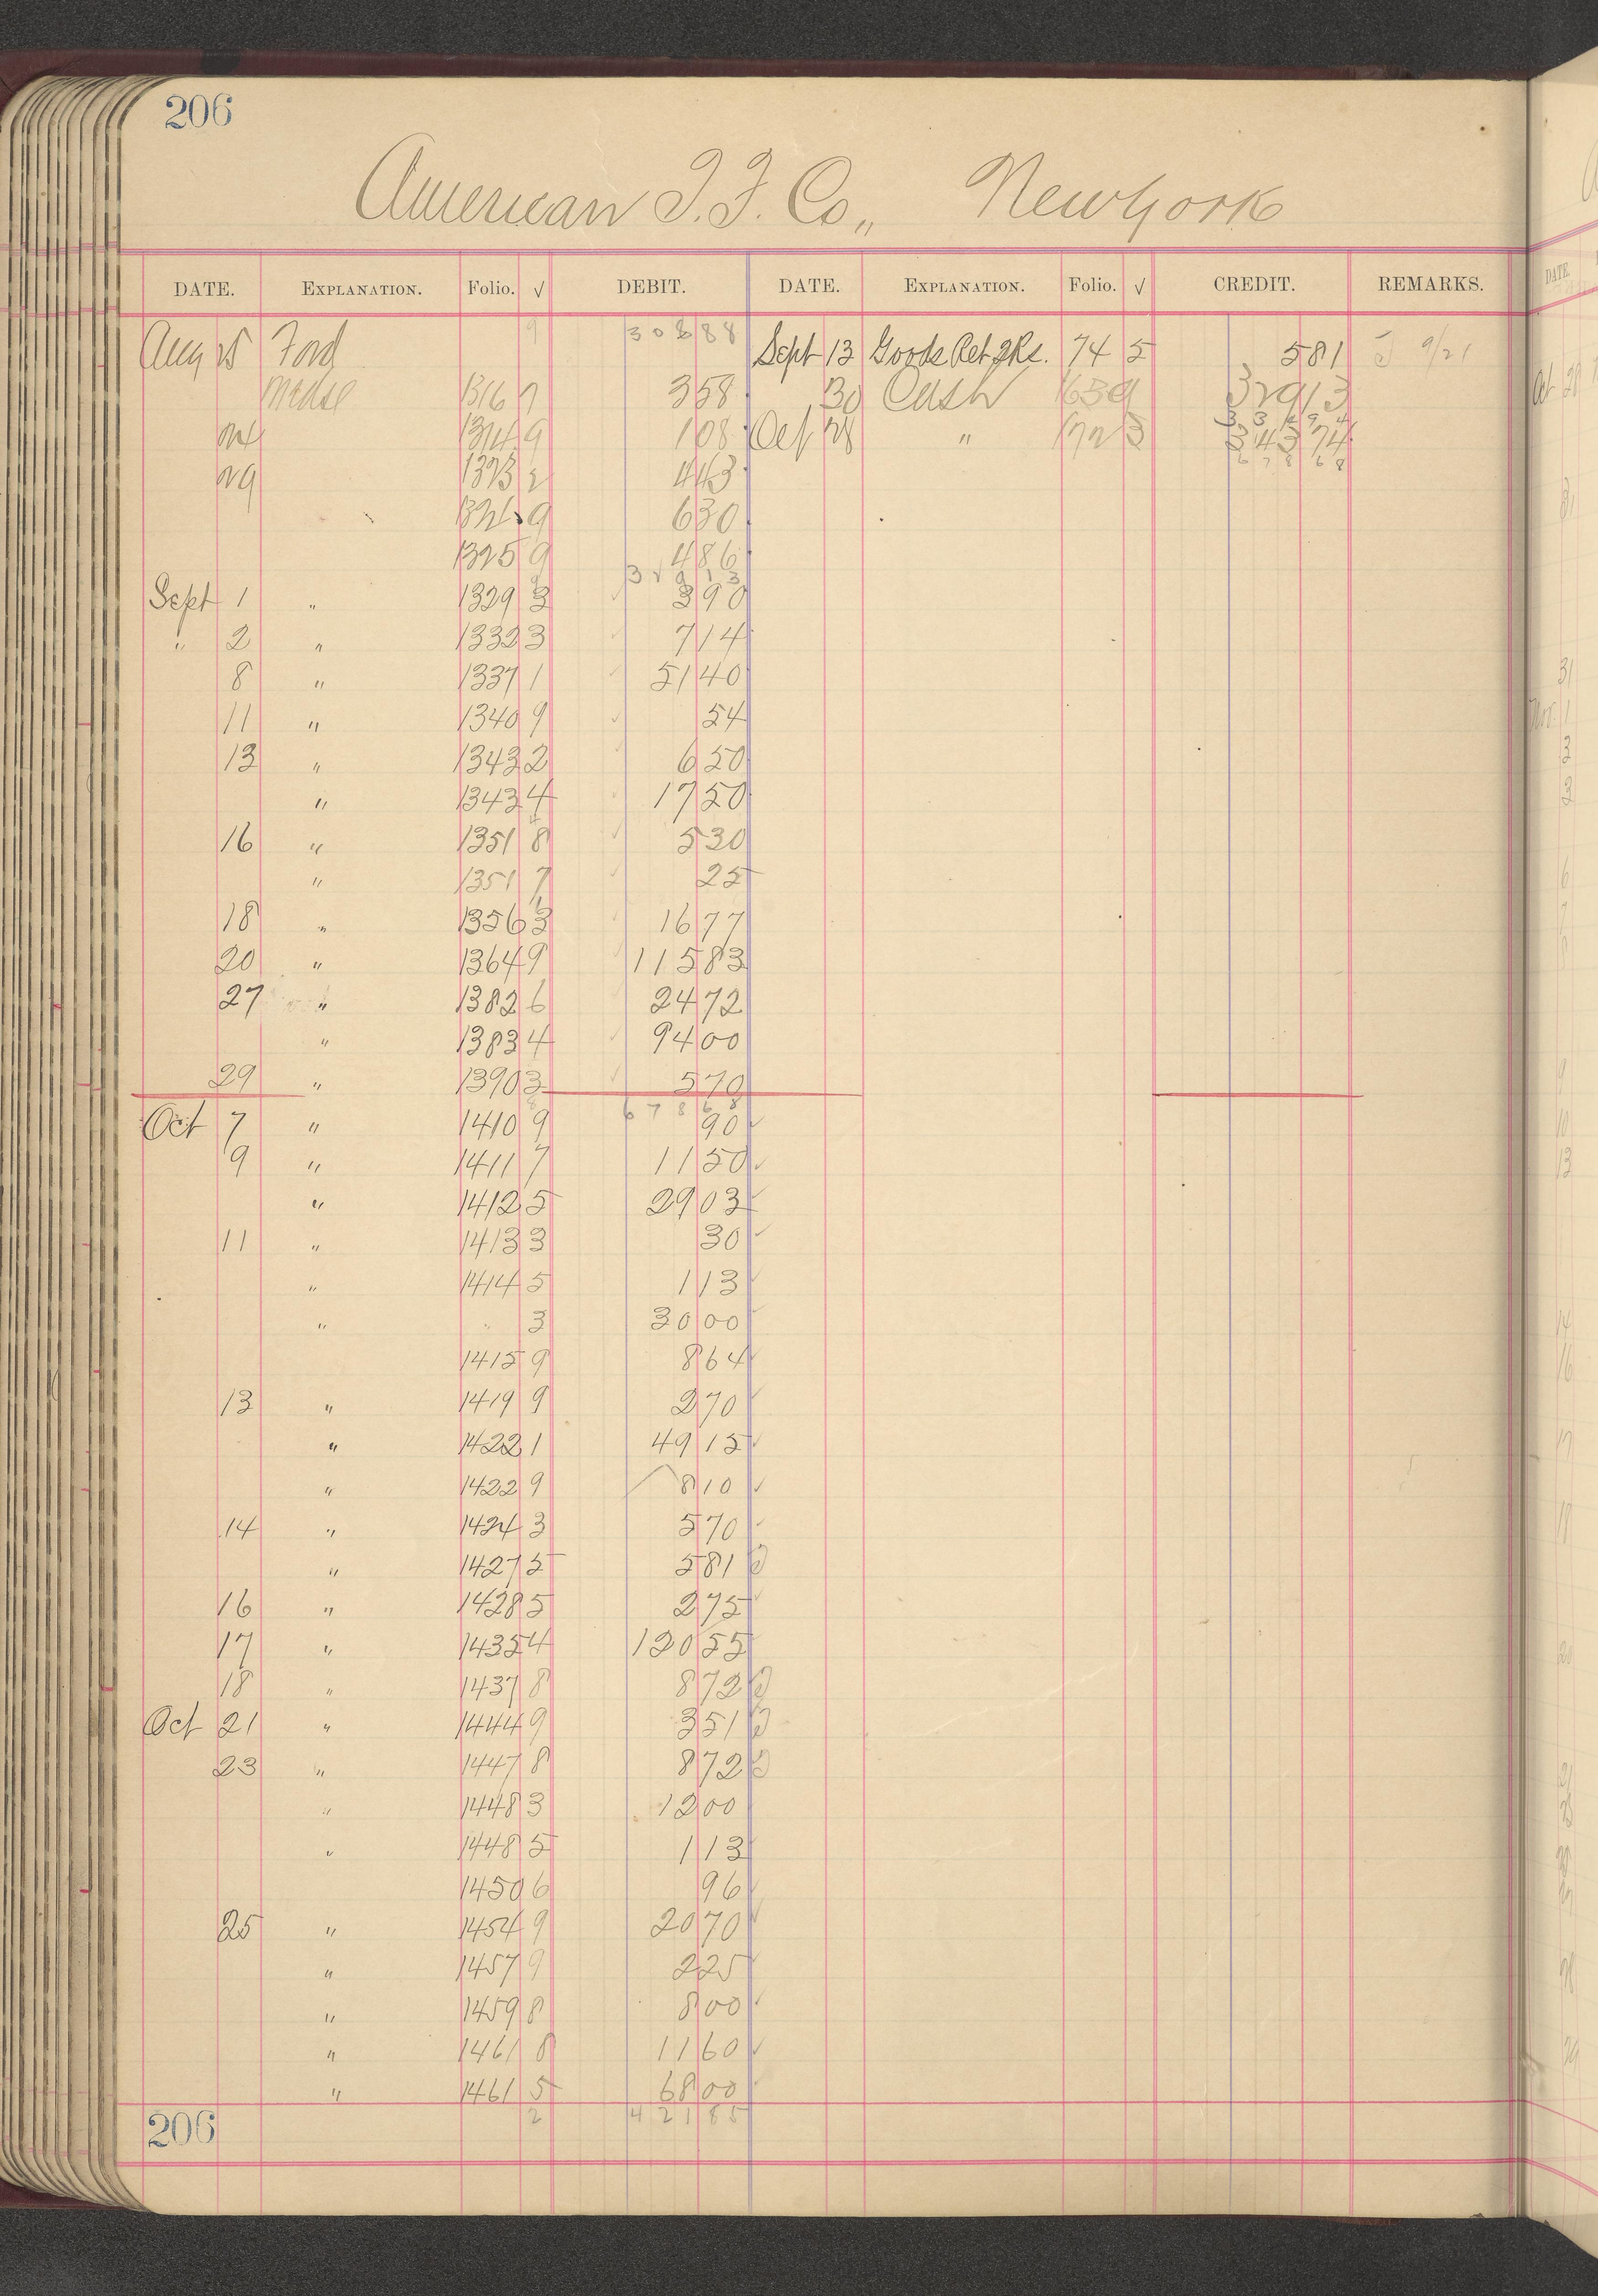 206
American I. F. Co., New York
DATE. EXPLANATION. Folio. √ DEBIT. DATE. EXPLANATION. Folio. √ CREDIT. REMARKS.
9 308 88
Aug 25 Ford Sept 13 Goods Ret 74 5 5 81 J 9/21
Mdse 1316 7 3 58 30 Cash 163 9 329 13
1314 9 1 08 Oct 28 " 172 3 343 74
29 1323 2 4 43 678 68
9 6 30
1325 9 4 86
329 13
Sept 1 " 1329 3 3 90
" 2 " 1332 3 7 14
8 " 1337 1 51 40
11 " 1340 9 54
13 " 1343 2 6 50
" 1343 4 17 50
16 " 1351 8 5 30
" 1351 7 25
18 " 1356 3 16 77
20 " 1364 9 115 83
27 " 1382 6 24 72
" 1383 4 94 00
29 " 1390 3 5 70
678 68
Oct 7 " 1410 9 90 ✓
9 " 1411 7 11 50 ✓
" 1412 5 29 03 ✓
11 " 1413 3 30 ✓
" 1414 5 1 13 ✓
" " 3 30 00 ✓
1415 9 8 64 ✓
13 " 1419 9 2 70 ✓
" 1422 1 49 15 ✓
" 1422 9 8 10 ✓
14 " 1424 3 5 70 ✓
" 1427 5 5 81
16 " 1428 5 2 75 ✓
17 " 1435 4 120 55 ✓
18 " 1437 8 8 72
Oct 21 " 1444 9 3 51
23 " 1447 8 8 72
" 1448 3 12 00
" 1448 5 1 13 ✓
1450 6 96 ✓
25 " 1454 9 20 70 ✓
" 1457 9 2 25 ✓
" 1459 8 8 00 ✓
" 1461 8 11 60 ✓
" 1461 5 68 00 ✓
2 421 85
206